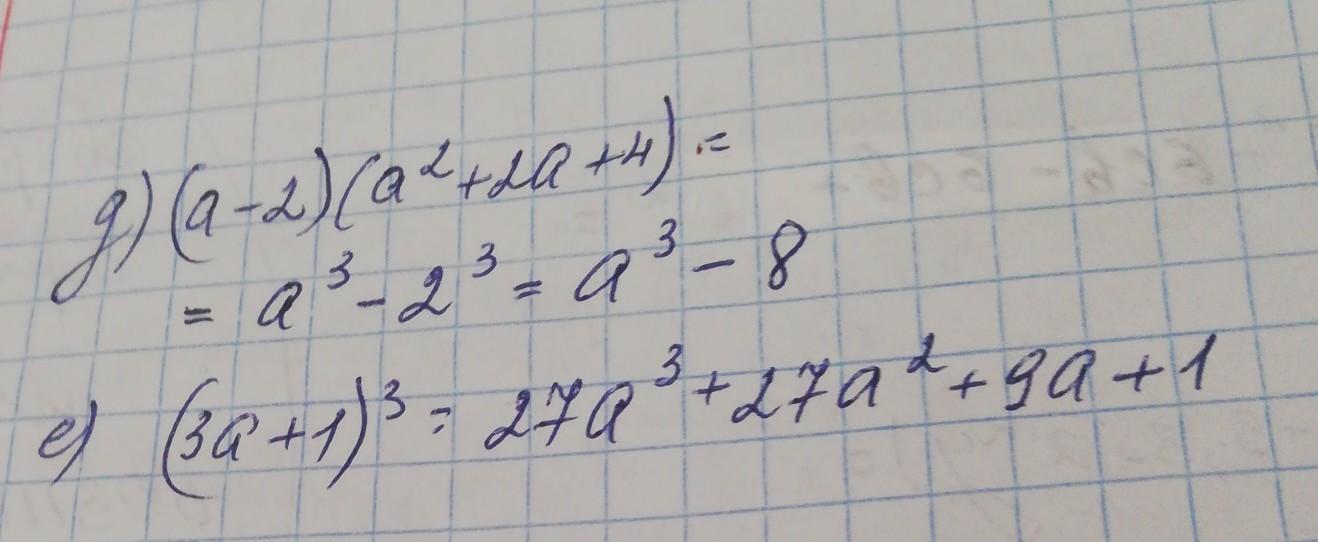 д) (a-2)(a²+2a+4) =
= a³ - 2³ = a³ - 8
е) (3a+1)³ = 27a³ + 27a² + 9a + 1